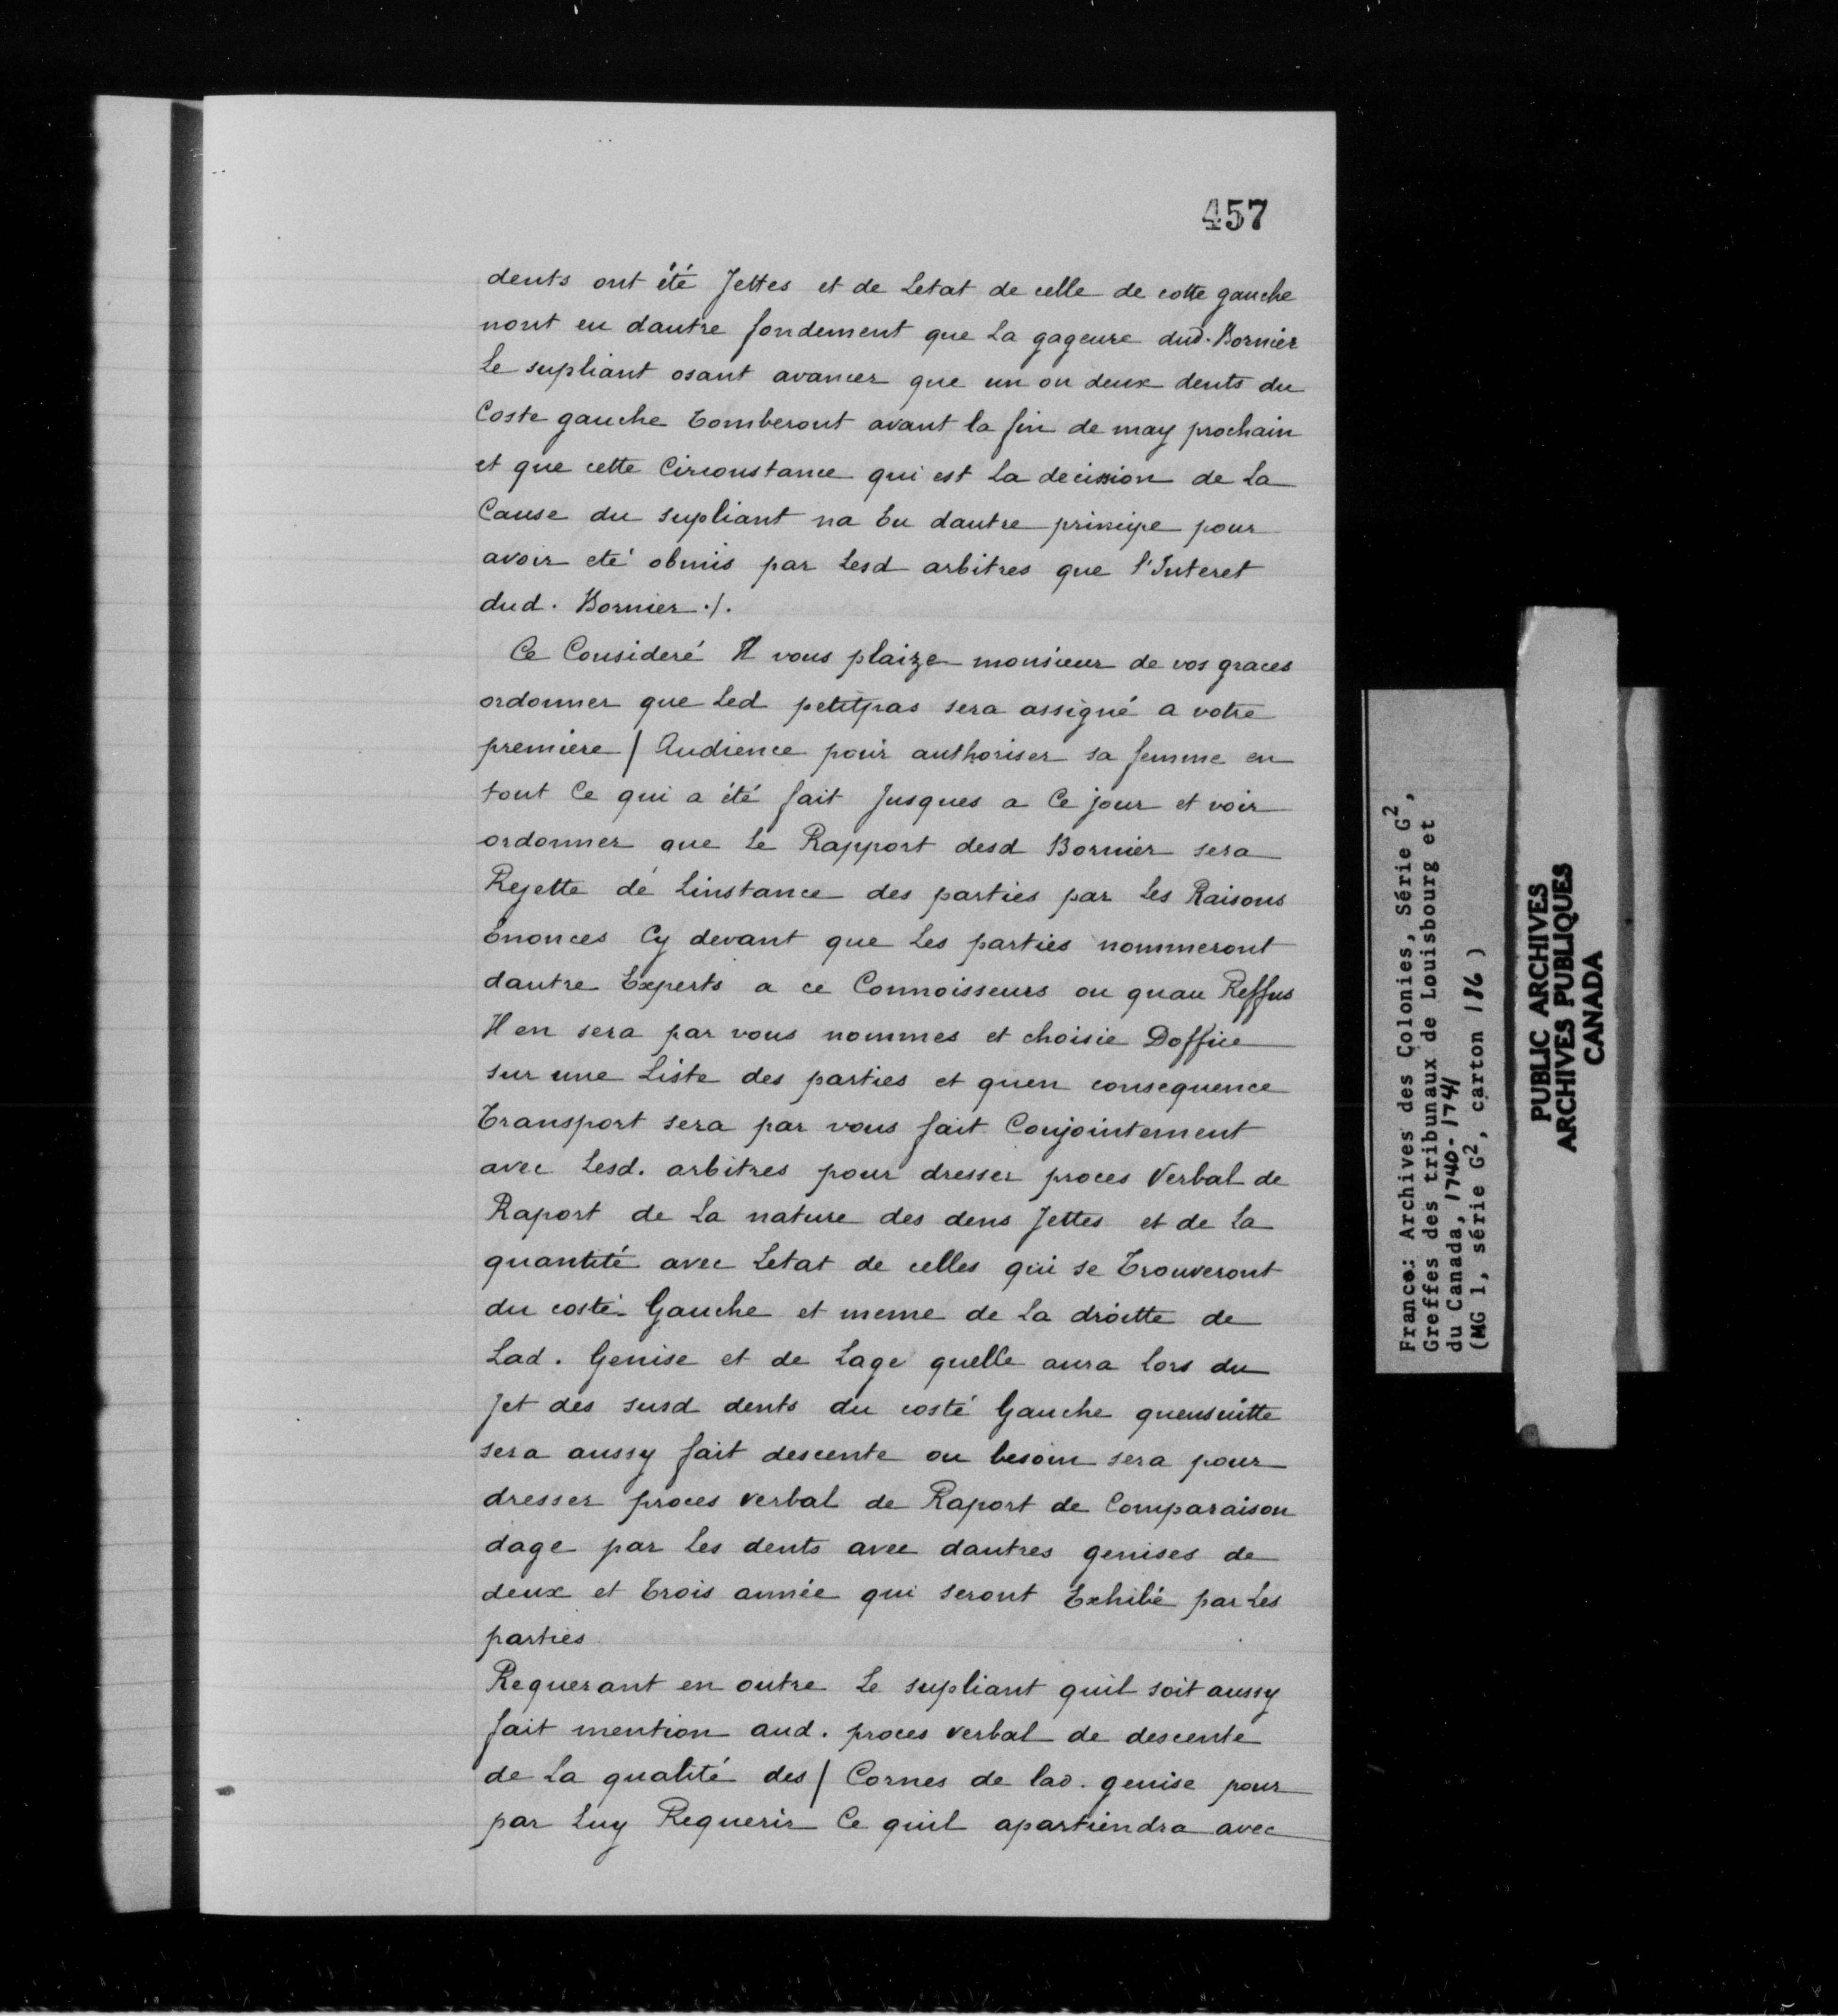 457
dents ont été Jettes et de Letat de celle de cotte gauche
nont eu dautre fondement que La gageure dud. Bornier
Le supliant osant avancer que un ou deux dents du
Coste gauche Tomberont avant la fin de may prochain
et que cette Circonstance qui est La decission de La
Cause du supliant na Eu dautre principe pour
avoir eté obmis par Lesd arbitres que l'Interet
dud. Bornier ./.
Ce Consideré Il vous plaize monsieur de vos graces
ordonner que Led petitpas sera assigné a votre
premiere / Audience pour authoriser sa femme en
tout Ce qui a été fait Jusques a Ce jour et voir
ordonner que Le Rapport desd Bornier sera
Rejette de Linstance des parties par Les Raisons
Enonces Cy devant que Les parties nommeront
dautre Experts a ce Connoisseurs ou quau Reffus
Il en sera par vous nommes et choisie Doffice
sur une Liste des parties et quen consequence
Transport sera par vous fait Conjointement
avec Lesd. arbitres pour dresser proces Verbal de
Raport de La nature des dens Jettes et de La
quantité avec Letat de celles qui se Trouveront
du costé Gauche et meme de La droitte de
Lad. Genise et de Lage quelle aura lors du
Jet des susd dents du costé Gauche quensuitte
sera aussy fait descente ou besoin sera pour
dresser proces verbal de Raport de Comparaison
dage par Les dents avec dautres genises de
deux et Trois année qui seront Exhibé par Les
parties
Requerant en outre Le supliant quil soit aussy
fait mention aud. proces verbal de descente
de La qualité des / Cornes de lad. genise pour
par Luy Requerir Ce quil apartiendra avec
France: Archives des Colonies, Série G2,
Greffes des tribunaux de Louisbourg et
du Canada, 1740-1741
(MG 1, série G2, carton 186)
PUBLIC ARCHIVES
ARCHIVES PUBLIQUES
CANADA